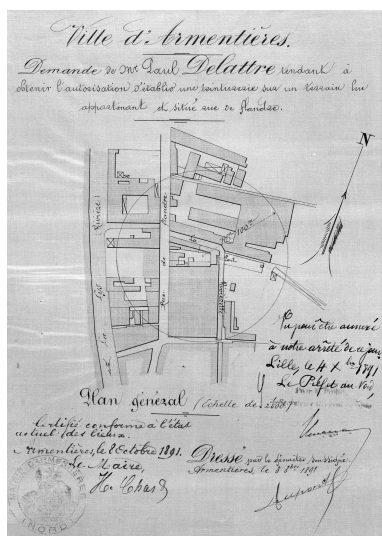 Ville d'Armentières.
Demande de Mr Paul Delattre tendant à
obtenir l'autorisation d'établir une teinturerie sur un terrain lui
appartenant et situé rue de Flandre.
N
Rivière
la Lys
Rue de Flandre
100m
Vu pour être annexé
à notre arrêté de ce jour
Lille, le 4 Xbre 1891
Le Préfet du Nord
Plan général (Echelle de
Certifié conforme à l'état
actuel des lieux.
Armentières, le 8 Octobre 1891.
Le Maire,
Dressé par le
soussigné
Armentières, le 8 8bre 1891
(NORD)